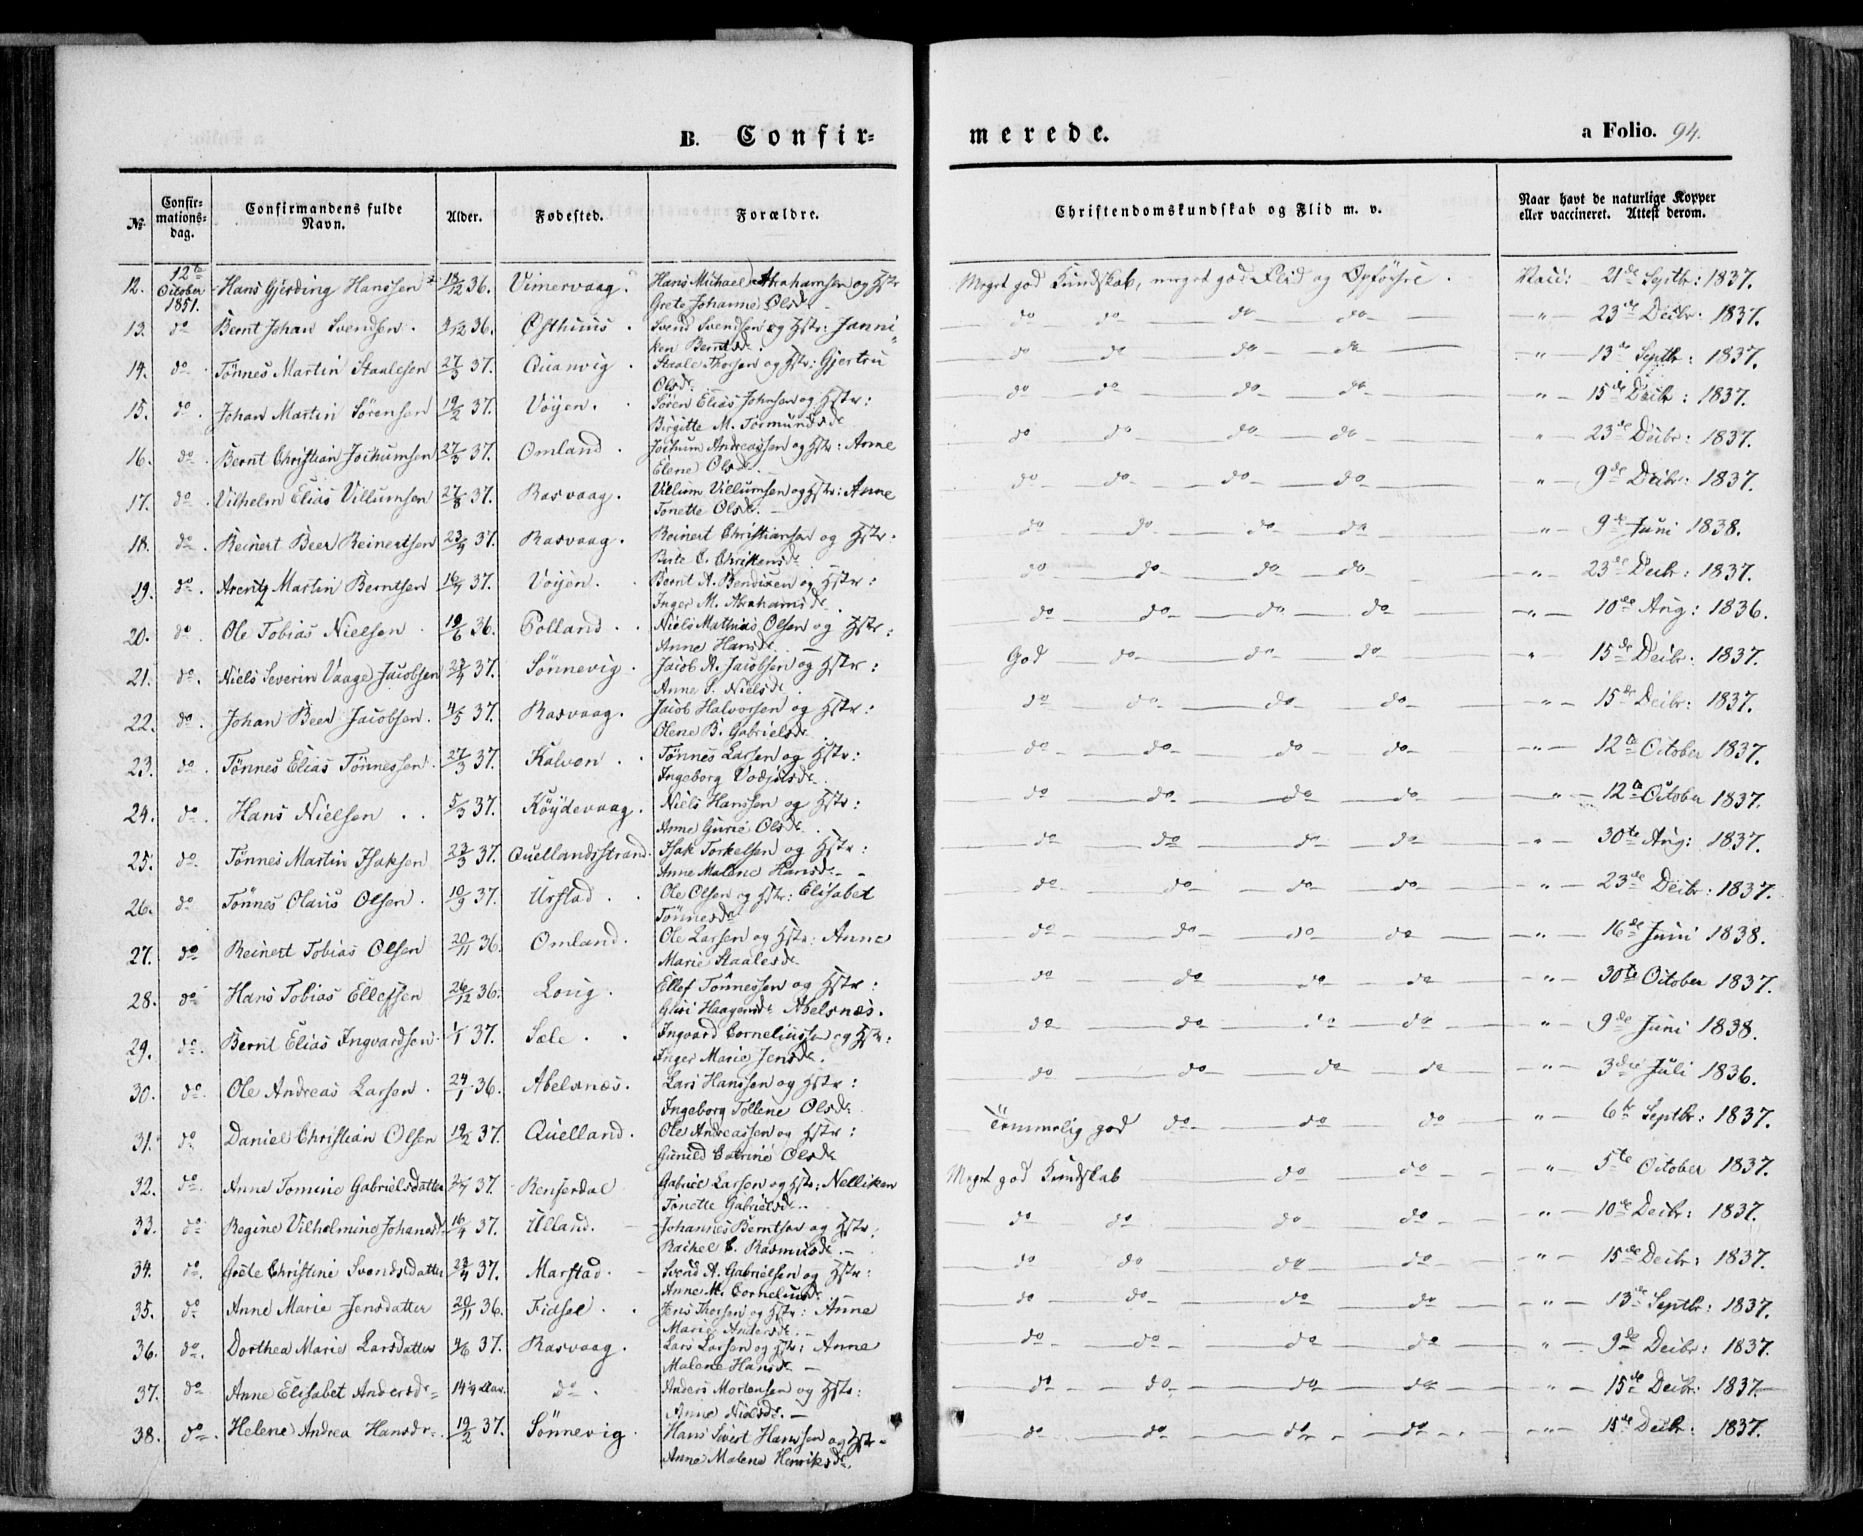 B. Confir=
merede.
a Folio. 94.
No. Confir-mations-dag. Confirmandens fulde Navn. Alder. Fødested. Forældre. Christendomskundskab og Flid m. v. Naar havt de naturlige Kopper eller vaccineret. Attest derom.
12. 12te October 1851. Hans Gjerding Hanssen 18/12 36. Vimervaag. Hans Michael Abrahamsen og Hstr Meget god Kundskab, meget god Flid og Opførsel. Vacc: 21de Septbr: 1837.
Grete Johanne Olsdr
13. do Bernt Johan Svendsen. 9/12 36. Østhuus. Svend Svendsen og Hstr: Janni do do do do " 23de Decbr: 1837.
ken Berntsdr.
14. do Tönnes Martin Staalesen 27/3 37. Quanvig. Staale Thorsen og Hstr. Gjertru do do do do " 13de Septbr: 1837.
Olsdr
15. do. Johan Martin Sörensen 19/2 37. Vöyen. Sören Elias Johnsen og Hstr: do do do do " 15de Decbr: 1837.
Birgitte M. Tormundsdr
16. do. Bernt Christian Jochumsen 27/3 37. Omland. Jochum Andreassen og Hstr: Anne do do do do " 23de Decbr: 1837.
Elene Olsdr.
17. do. Vilhelm Elias Villumsen 27/8 37. Rasvaag. Villum Villumsen og Hstr: Anne do do do do " 9de Decbr: 1837.
Tonette Olsdr.
18. do. Reinert Beer Reinertsen 23/9 37. Rasvaag. Reinert Christiansen og Hstr. do do do do " 9de Juni 1838.
Birte C. Christensdr
19. do. Arentz Martin Berntsen 16/4 37. Vöyen. Bernt A. Bendixen og Hstr: do do do do " 23de Decbr: 1837.
Inger M. Abrahamsdr.
20. do Ole Tobias Nielsen. 19/6 36. Polland. Niels Mathias Olsen og Hstr: do do do do " 10de Aug: 1836.
Anne Hansdr.
21. do. Niels Severin Vaage Jacobsen 23/4 37. Sönnevig. Jacob A. Jacobsen og Hstr: God do do do " 15de Decbr: 1837.
Anne S. Nielsdr.
22. do. Johan Beer Jacobsen. 4/5 37. Rasvaag. Jacob Halvorsen og Hstr: do do do do " 15de Decbr: 1837.
Olene B. Gabrielsdr.
23. do. Tönnes Elias Tönnessen. 27/3 37. Kalven. Tönnes Larsen og Hstr: do do do do " 12te October 1837.
Ingeborg
24. do. Hans Nielsen 5/3 37. Köydevaag. Niels Hanssen og Hstr: do do do do " 12te October 1837.
Anne Gurie Olsdr.
25. do. Tönnes Martin Isaksen 23/3 37. Quellandsstrand. Isak Torkelsen og Hstr: do do do do " 30te Aug: 1837.
Anne Malene Hansdr.
26. do Tönnes Olaus Olsen. 10/9 37. Urstad. Ole Olsen og Hstr: Elisabet do do do do " 23de Decbr: 1837.
Tönnesdr
27. do Reinert Tobias Olsen 20/11 36. Omland. Ole Larsen og Hstr: Anne do do do do " 16de Juni 1838.
Marie Staalesdr
28. do Hans Tobias Ellefsen 26/12 36. Loug. Ellef Tönnessen og Hstr: do do do do " 30te October 1837.
Haagensdr Abelsnæs.
29. do. Bernt Elias Ingvardsen 1/1 37. Sæle. Ingvard Corneliussen og Hstr: do do do do " 9de Juni 1838.
Inger Marie Jensdr.
30. do. Ole Andreas Larsen. 24/1 36. Abelsnæs. Lars Hanssen og Hstr: do do do do " 3die Juli 1836.
Ingeborg Tollene Olsdr
31. do Daniel Christian Olsen 19/2 37. Quelland. Ole Andreassen og Hstr: Temmelig god do do do " 6te Septbr: 1837.
Gunild Catrine Olsdr
32. do. Anne Tomine Gabrielsdatter 37. Rensordal Gabriel Larsen og Hstr: Nelliken Meget god Kundskab do do " 5te October 1837.
Tonette Gabrielsdr.
33. do Regine Vilhelmine Johansd. 16/4 37. Ulland. Johannes Berntsen og Hstr: do do do do " 10de Decbr: 1837.
Rachel C. Rasmusdr.
34. do. Grete Christine Svendsdatter 23/4 37. Marstad. Svend A. Gabrielsen og Hstr: do do do do " 15de Decbr: 1837.
Anne M. Corneliusdr
35. do Anne Marie Jensdatter 20/11 36. Fidsel. Jens Thorsen og Hstr: Anne do do do do " 13de Septbr: 1837.
Marie Andersdr.
36. do. Dorthea Marie Larsdatter 4/6 37. Rasvaag. Lars Larsen og Hstr: Anne do do do do " 9de Decbr: 1837.
Malene Hansdr
37. do Anne Elisabet Andersdr 14 1/4 Aar. do. Anders Mortensen og Hstr: do do do do " 15de Decbr: 1837
Anne Nielsdr.
38. do. Helene Andrea Hansdr. 19/2 37. Sönnevig. Hans Sivert Hanssen og Hstr. do do do do " 15de Decbr: 1837.
Anne Malene Henriksdr.